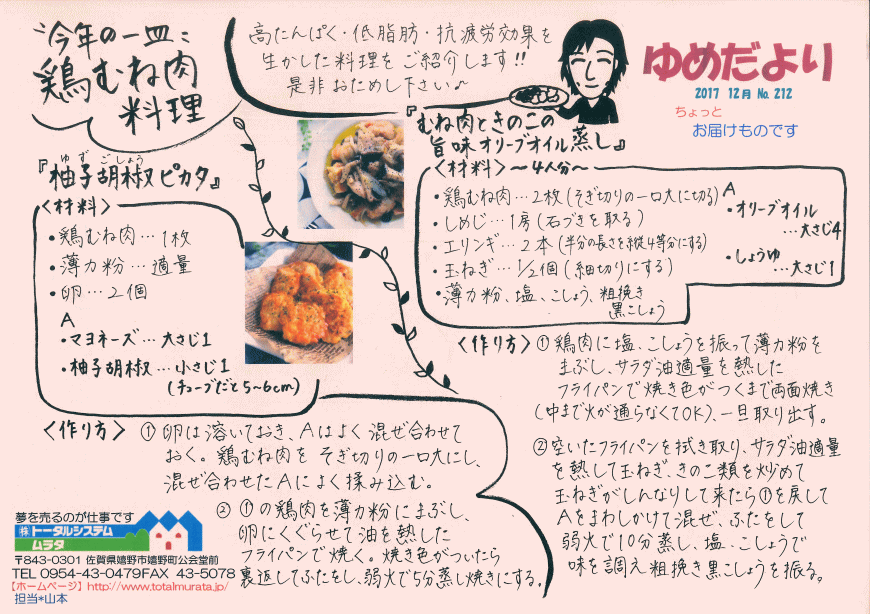 今年の一皿:
鶏むね肉
料理
高たんぱく・低脂肪・抗疲労効果を
生かした料理をご紹介します!!
是非おためし下さい♪
ゆめだより
2017 12月 No.212
ちょっと
お届けものです
『柚子胡椒ピカタ』
ゆず ごしょう
〈材料〉
・鶏むね肉…1枚
・薄力粉…適量
・卵…2個
A
・マヨネーズ…大さじ1
・柚子胡椒…小さじ1
(チューブだと5~6cm)
〈作り方〉 ① 卵は溶いておき、Aはよく混ぜ合わせて
おく。鶏むね肉をそぎ切りの一口大にし、
混ぜ合わせたAによく揉み込む。
② ①の鶏肉を薄力粉にまぶし、
卵にくぐらせて油を熱した
フライパンで焼く。焼き色がついたら
裏返してふたをし、弱火で5分蒸し焼きにする。
『むね肉ときのこの
旨味オリーブオイル蒸し』
〈材料〉~4人分~
・鶏むね肉…2枚(そぎ切りの一口大に切る)
・しめじ…1房(石づきを取る)
・エリンギ…2本(半分の長さを縦4等分にする)
・玉ねぎ…1/2個(細切りにする)
・薄力粉、塩、こしょう、粗挽き
黒こしょう
A
・オリーブオイル
…大さじ4
・しょうゆ
…大さじ1
〈作り方〉①鶏肉に塩、こしょうを振って薄力粉を
まぶし、サラダ油適量を熱した
フライパンで焼き色がつくまで両面焼き
(中まで火が通らなくてOK)、一旦取り出す。
②空いたフライパンを拭き取り、サラダ油適量
を熱して玉ねぎ、きのこ類を炒めて
玉ねぎがしんなりして来たら①を戻して
Aをまわしかけて混ぜ、ふたをして
弱火で10分蒸し、塩、こしょうで
味を調え粗挽き黒こしょうを振る。
夢を売るのが仕事です
㈱トータルシステム
ムラタ
〒843-0301 佐賀県嬉野市嬉野町公会堂前
TEL 0954-43-0479 FAX 43-5078
【ホームページ】http://www.totalmurata.jp/
担当*山本